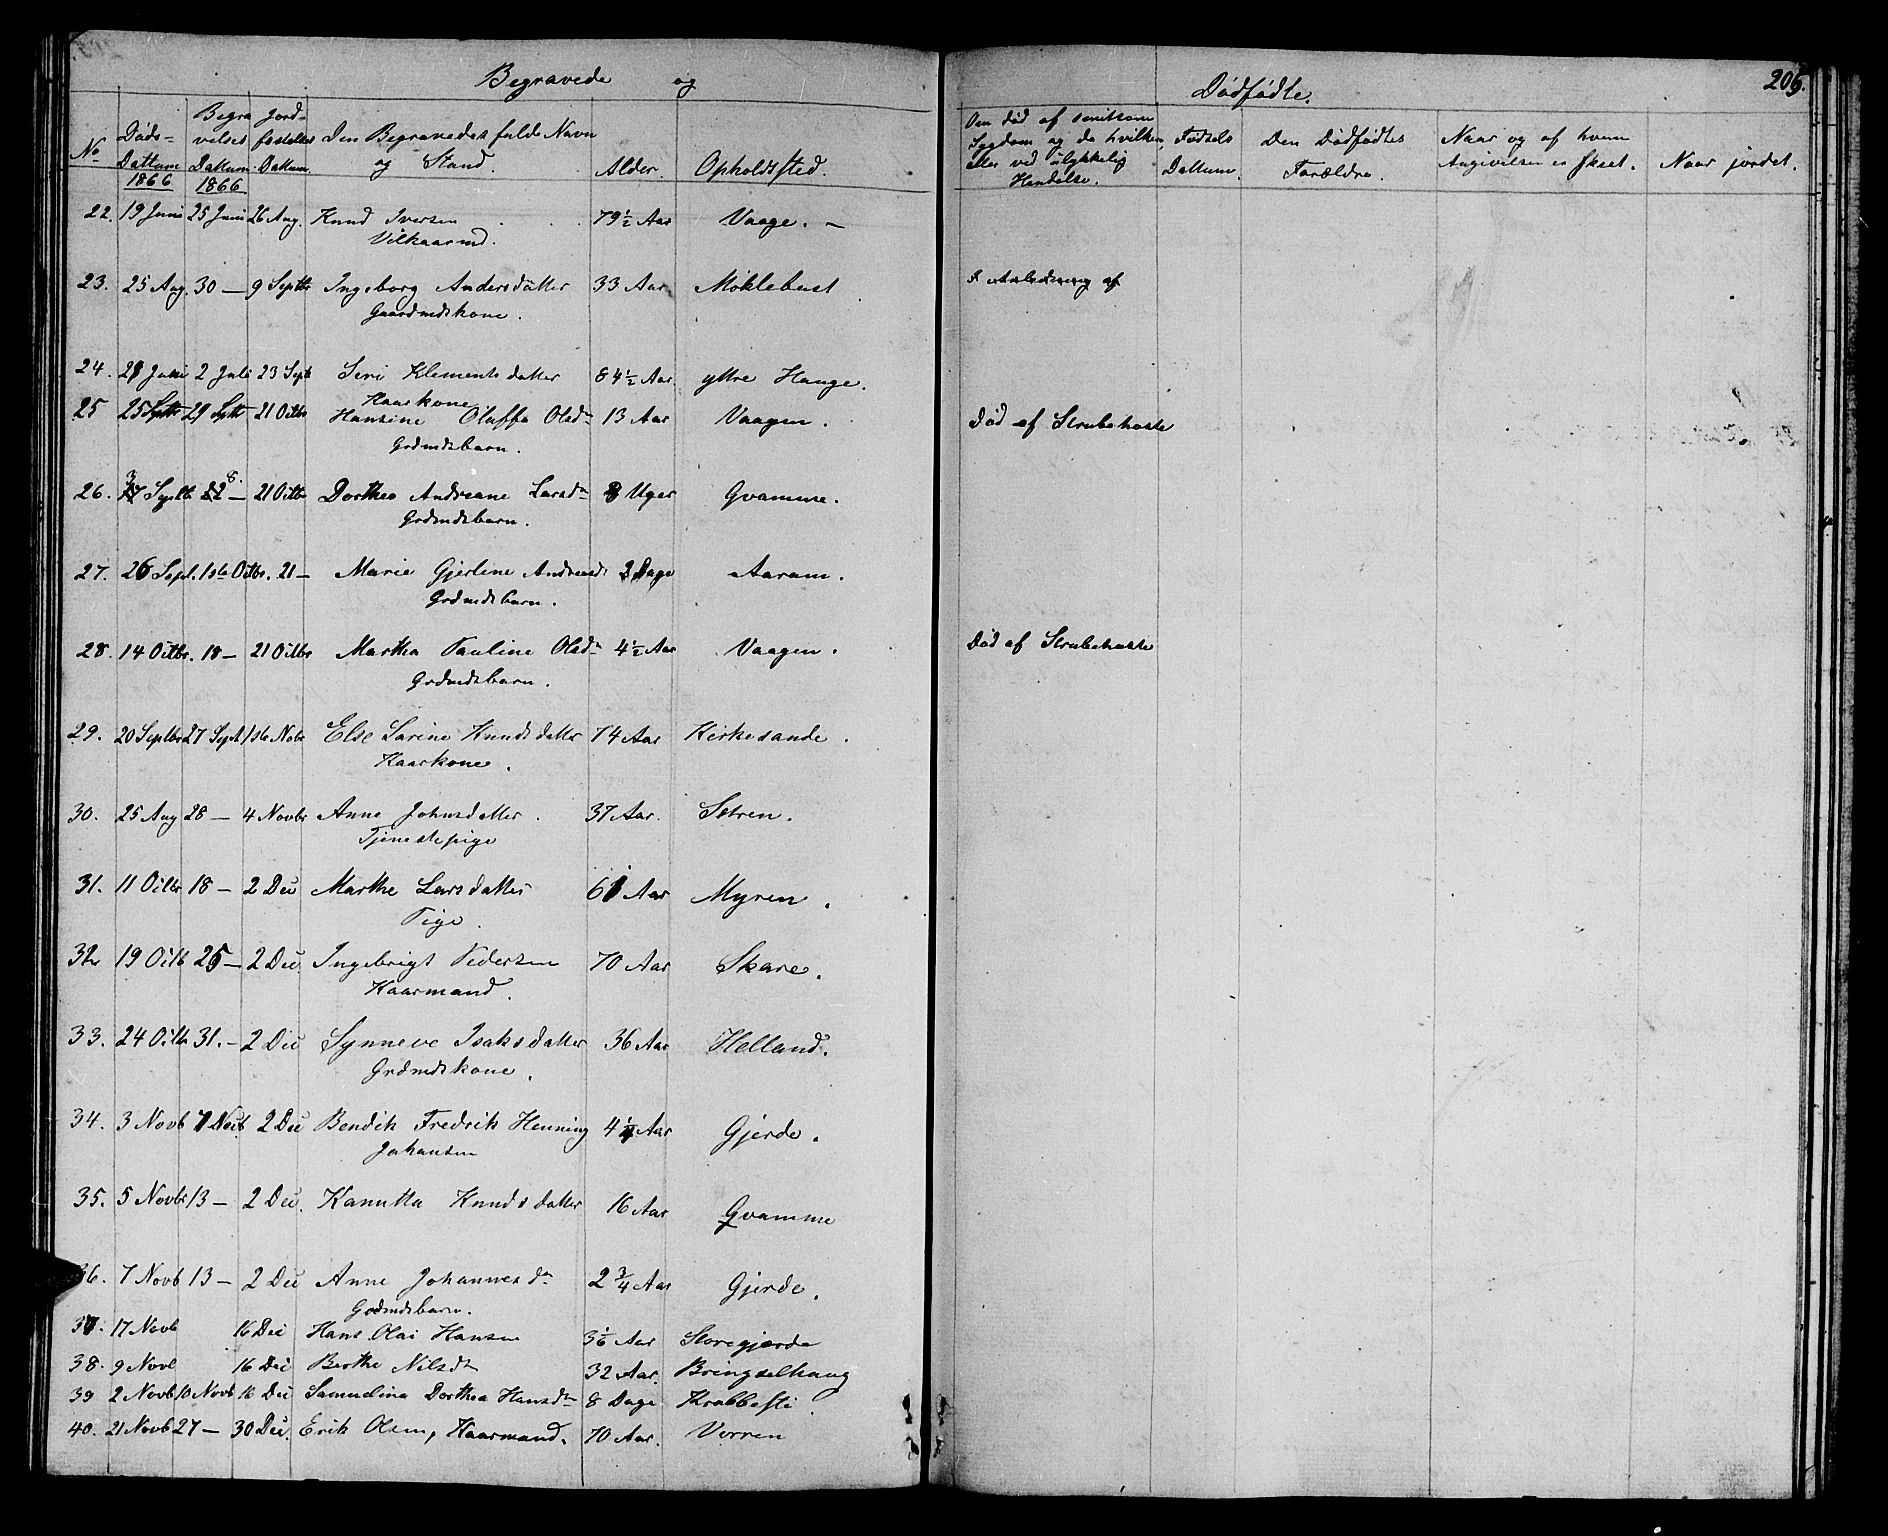 Begravede og
Dødfødte.
205.
No
Døds-
Dattum
1866
Begra
velses
Dattum
1866
Jord-
fæstelses
Dattum.
Den Begravedes fulde Navn
og Stand.
Alder.
Opholdsted.
Den død af smitsom
Sygdom og da hvilken,
eller ved ulykkelig
Hændelse.
Fødsels
Dattum.
Den Dødfødtes
Forældre.
Naar og af hvem
Angivelsen er skeet.
Naar jordet.
22. 19 Juni 25 Juni 26 Aug. Knud Iversen 79 1/2 Aar Vaage. -
Vilkaarmd.
23. 25 Aug. 30 — 9 Septbr Ingeborg Andersdatter 33 Aar Møklebust
Gaardmdskone.
24. 21 Juni 2 Juli 23 Sept Siri Klementsdatter 84 1/2 Aar. yttre Hauge.
Kaarkone
25 25 Septbr 29 Septbr 21 Octbr Hansine Oluffa Olsdr 13 Aar Vaagen. Død af Strubehoste
Grdmdsbarn.
26. Septb 21 Octbr Dorthea Andreane Larsdr 8 Uger Gvamme.
Grdmdsbarn.
27. 26 Sept. 1ste Octbr. 21 — Marie Gjertine Andreasd. 2 Dage Aaram.
Grdmdsbarn.
28. 14 Octbr. 18 — 21 Octbr Martha Pauline Olsdr 4 1/2 Aar Vaagen. Død af Strubehoste
Grdmdsbarn.
29. 20 Septbr 27 Sept 1ste Novbr Else Sarine Knudsdatter 74 Aar Kirkesande.
Kaarkone.
30. 25 Aug 28 — 4 Novbr Anne Johnsdatter. 37 Aar. Sætren.
Tjenestepige
31. 11 Octbr 18 — 2 Dec Marthe Larsdatter 61 Aar Myren.
Pige.
32 19 Octb 25 — 2 Dec Ingebrigt Pedersen 70 Aar Skare.
Kaarmand.
33. 24 Octb 31. — 2 Dec Synneve Isaksdatter 36 Aar Helland.
Grdmdskone.
34. 3 Novb 7 Novb 2 Dec Bendik Fredrik Henning 4 1/4 Aar Gjerde.
Johansen
35. 5 Novbr 13 — 2 Dec. Kanutta Knudsdatter 16 Aar Gvamme
36. 7 Novb 13 — 2 Dec Anne Johannesdr 2 3/4 Aar Gjerde.
Grdmdsbarn.
37. 17 Novb 16 Dec Hans Olai Hansen 3 1/6 Aar Storegjerde
38. 9 Novb 16 Dec Berthe Nilsdr 32 Aar. Bringselhaug
39 2 Novb 10 Novb 16 Dec Samueline Dorthea Hansdr 8 Dage Krabbesti
40. 21 Novb 27 — 30 Dec. Erik Olsen, Kaarmand. 70 Aar. Vorren